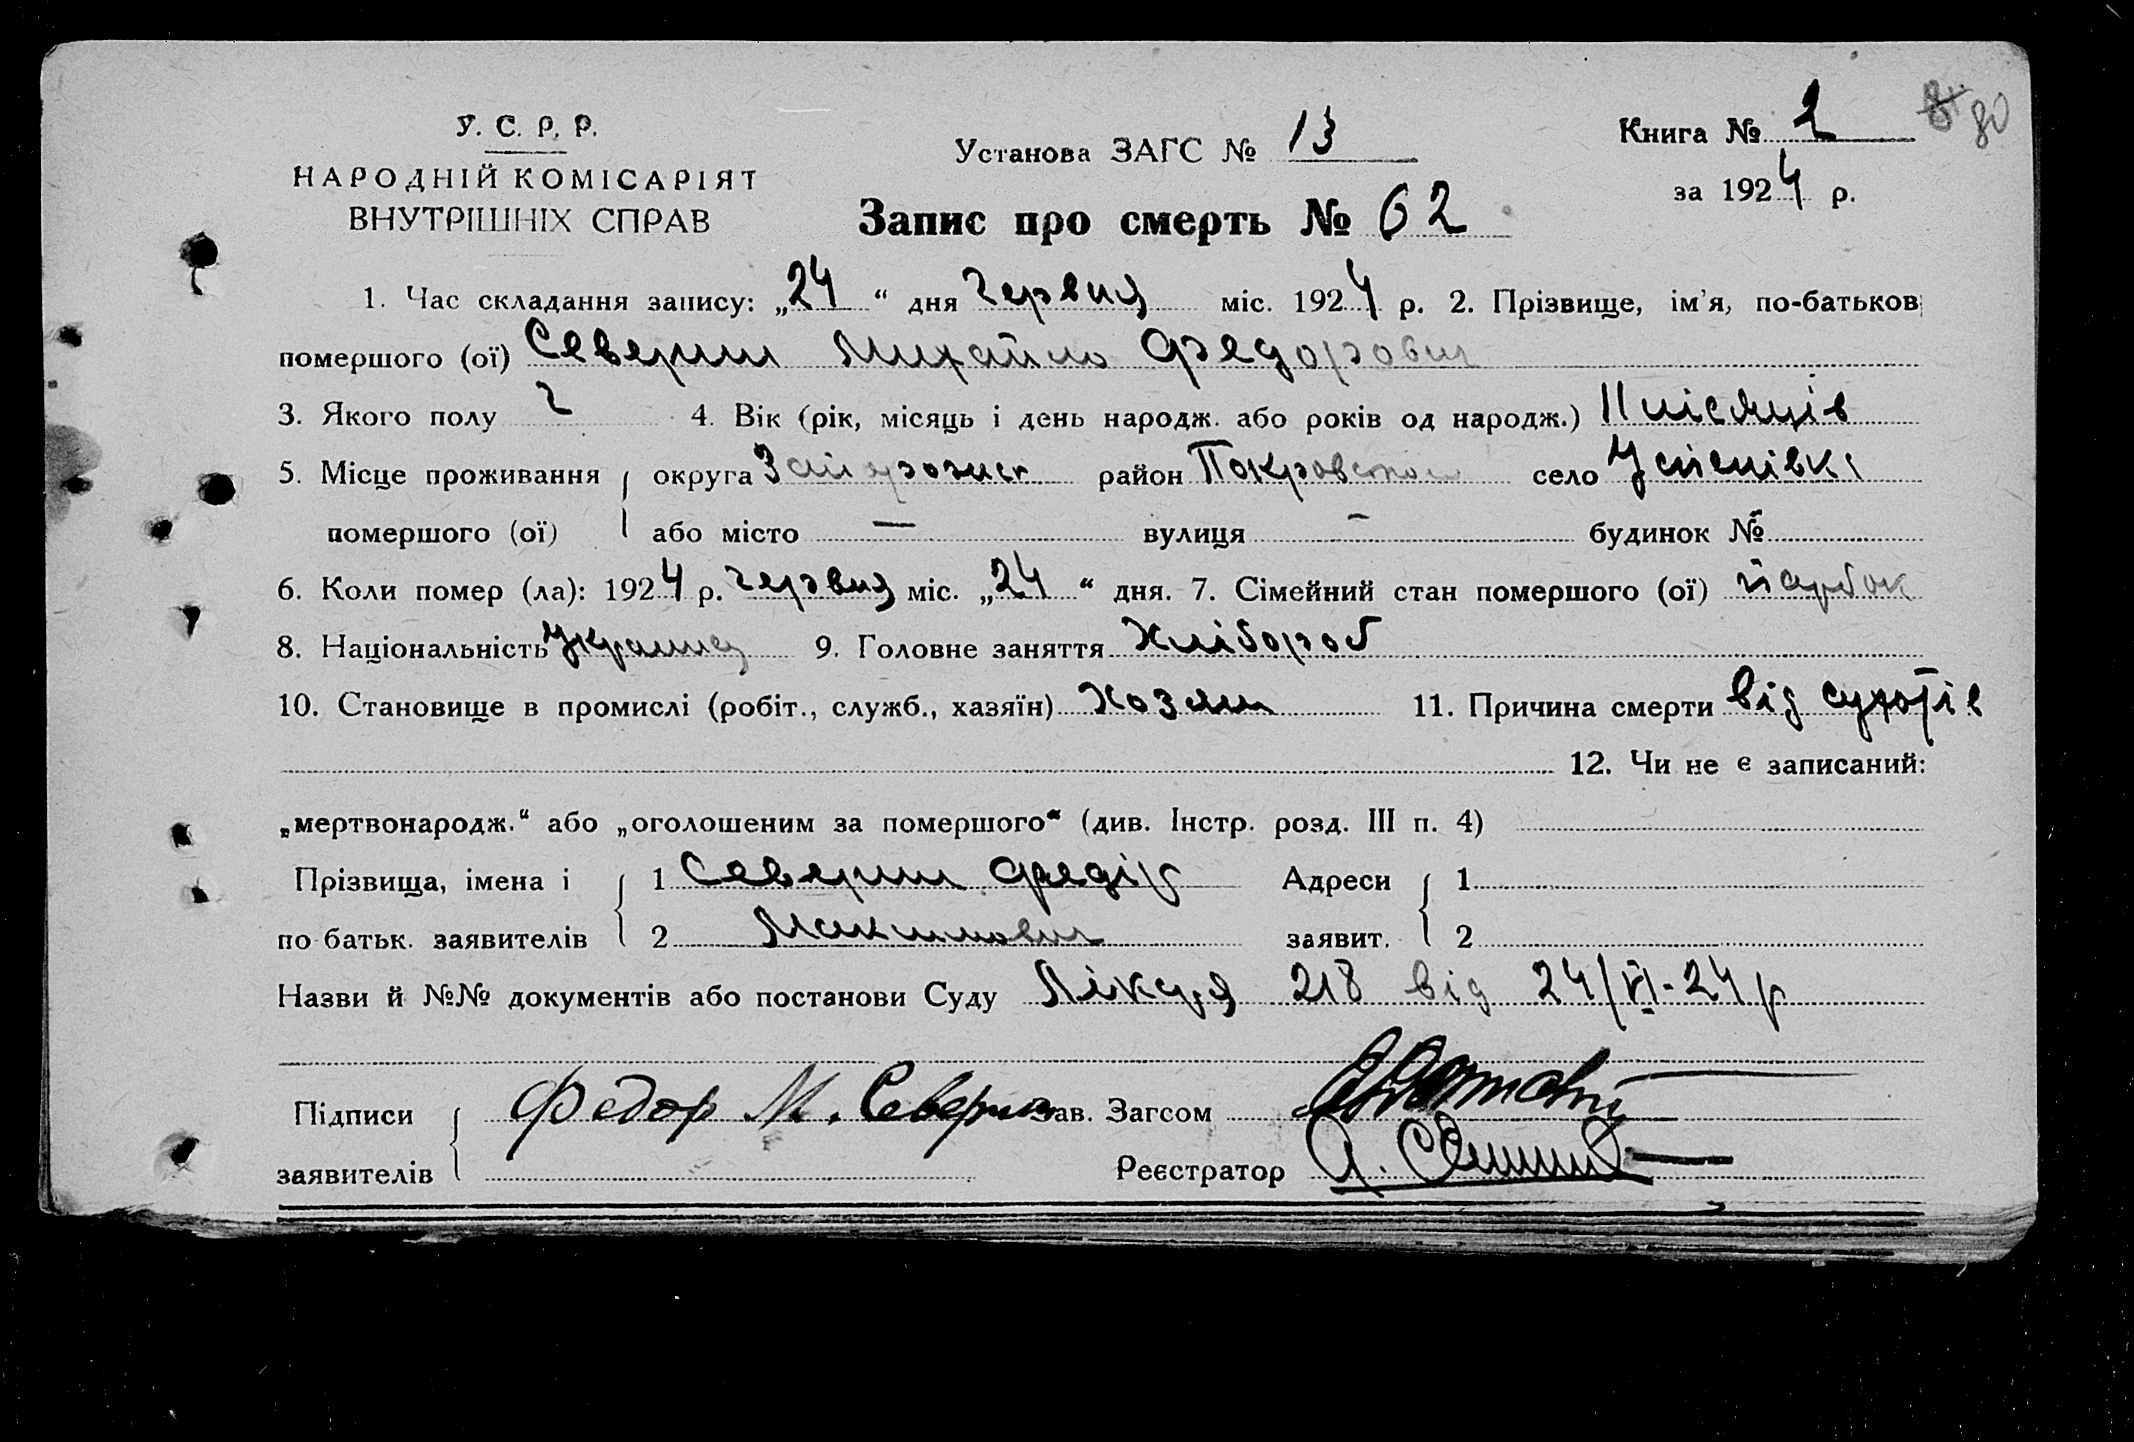 У. С. Р. Р.
НАРОДНІЙ КОМІСАРІЯТ
ВНУТРІШНІХ СПРАВ
Установа ЗАГС № 13
Книга № 2
80
за 1924 р.
Запис про смерть № 62
1. Час складання запису: „24“ дня червня міс. 1924 р. 2. Прізвище, ім'я, по-батькові
помершого (ої) Северин Михайло Федорович
3. Якого полу ч 4. Вік (рік, місяць і день народж. або років од народж.) 11 місяців
5. Місце проживання округа Запорозьк район Покровськом село Успенівкі
помершого (ої) або місто — вулиця — будинок №
6. Коли помер (ла): 1924 р. червня міс. „24“ дня. 7. Сімейний стан помершого (ої) парубок
8. Національність 9. Головне заняття Хлібороб
10. Становище в промислі (робіт., служб., хазяїн) Хозяин 11. Причина смерти від сухотів
12. Чи не є записаний:
„мертвонародж.“ або „оголошеним за помершого“ (див. Інстр. розд. III п. 4)
Прізвища, імена і 1 Северин Федір Адреси 1
по батьк. заявителів 2 Максимович заявит. 2
Назви й №№ документів або постанови Суду Лікаря 218 від 24/VI-24 р
Підписи Федор М. Северин Зав. Загсом
заявителів Реєстратор